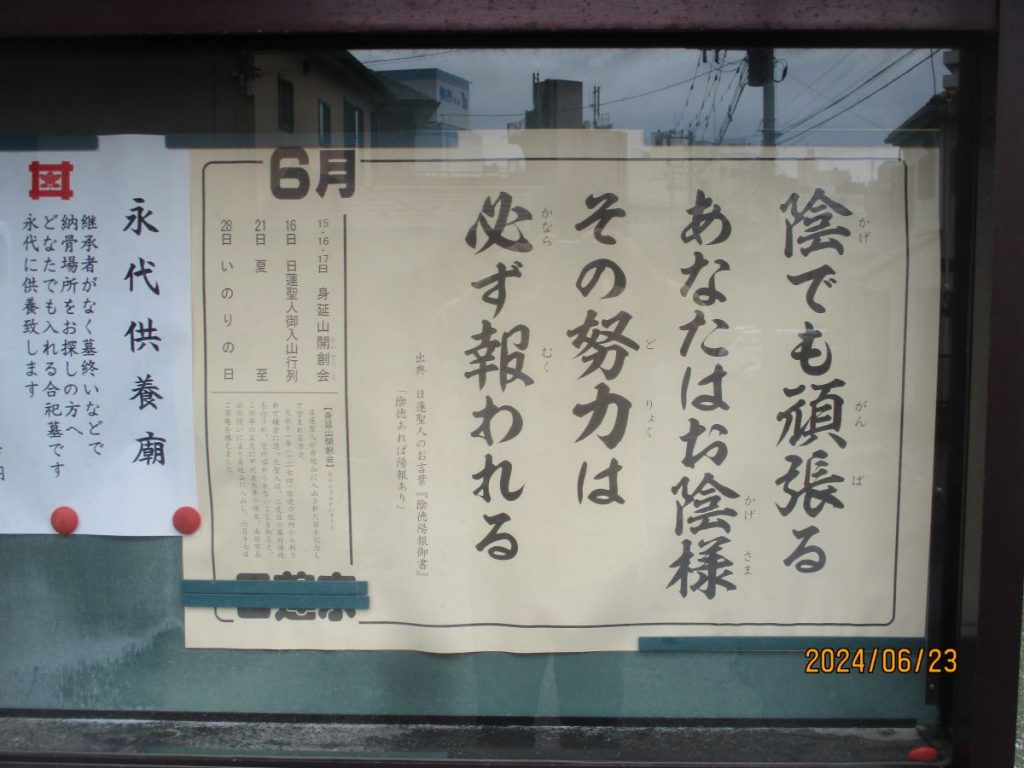 陰でも頑張る
あなたはお陰様
その努力は
必ず報われる
かげ
がん
ば
かげ
さま
ど
りょく
かなら
むく
出典 日蓮聖人のお言葉『陰徳陽報御書』
「陰徳あれば陽報あり」
6月
15・16・17日 身延山開創会
16日 日蓮聖人御入山行列
21日 夏至
28日 いのりの日
【身延山開創会】
日蓮宗
永代供養廟
継承者がなく墓終いなどで
納骨場所をお探しの方へ
どなたでも入れる合祀墓です
永代に供養致します
2024/06/23